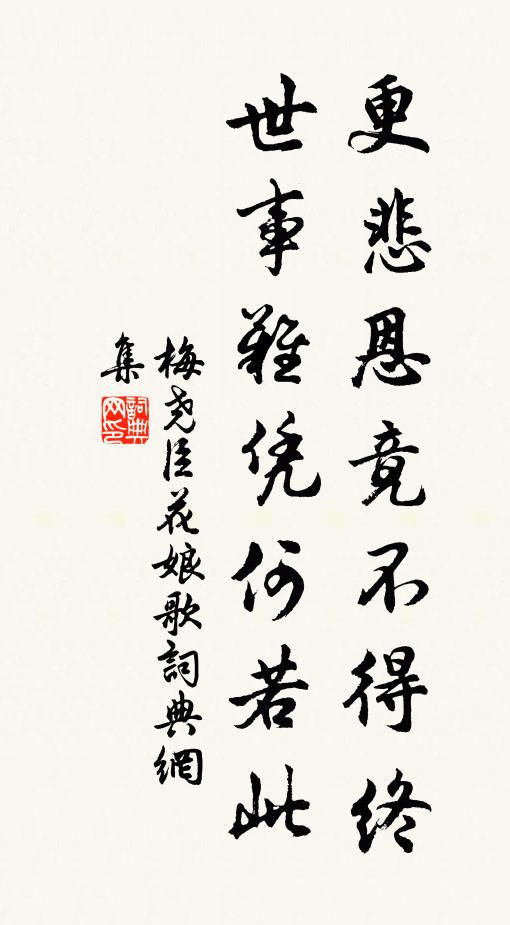 更悲恩竟不得终
世事難凭何若此
梅尧臣花娘歌詞典網
集
詞典
网印